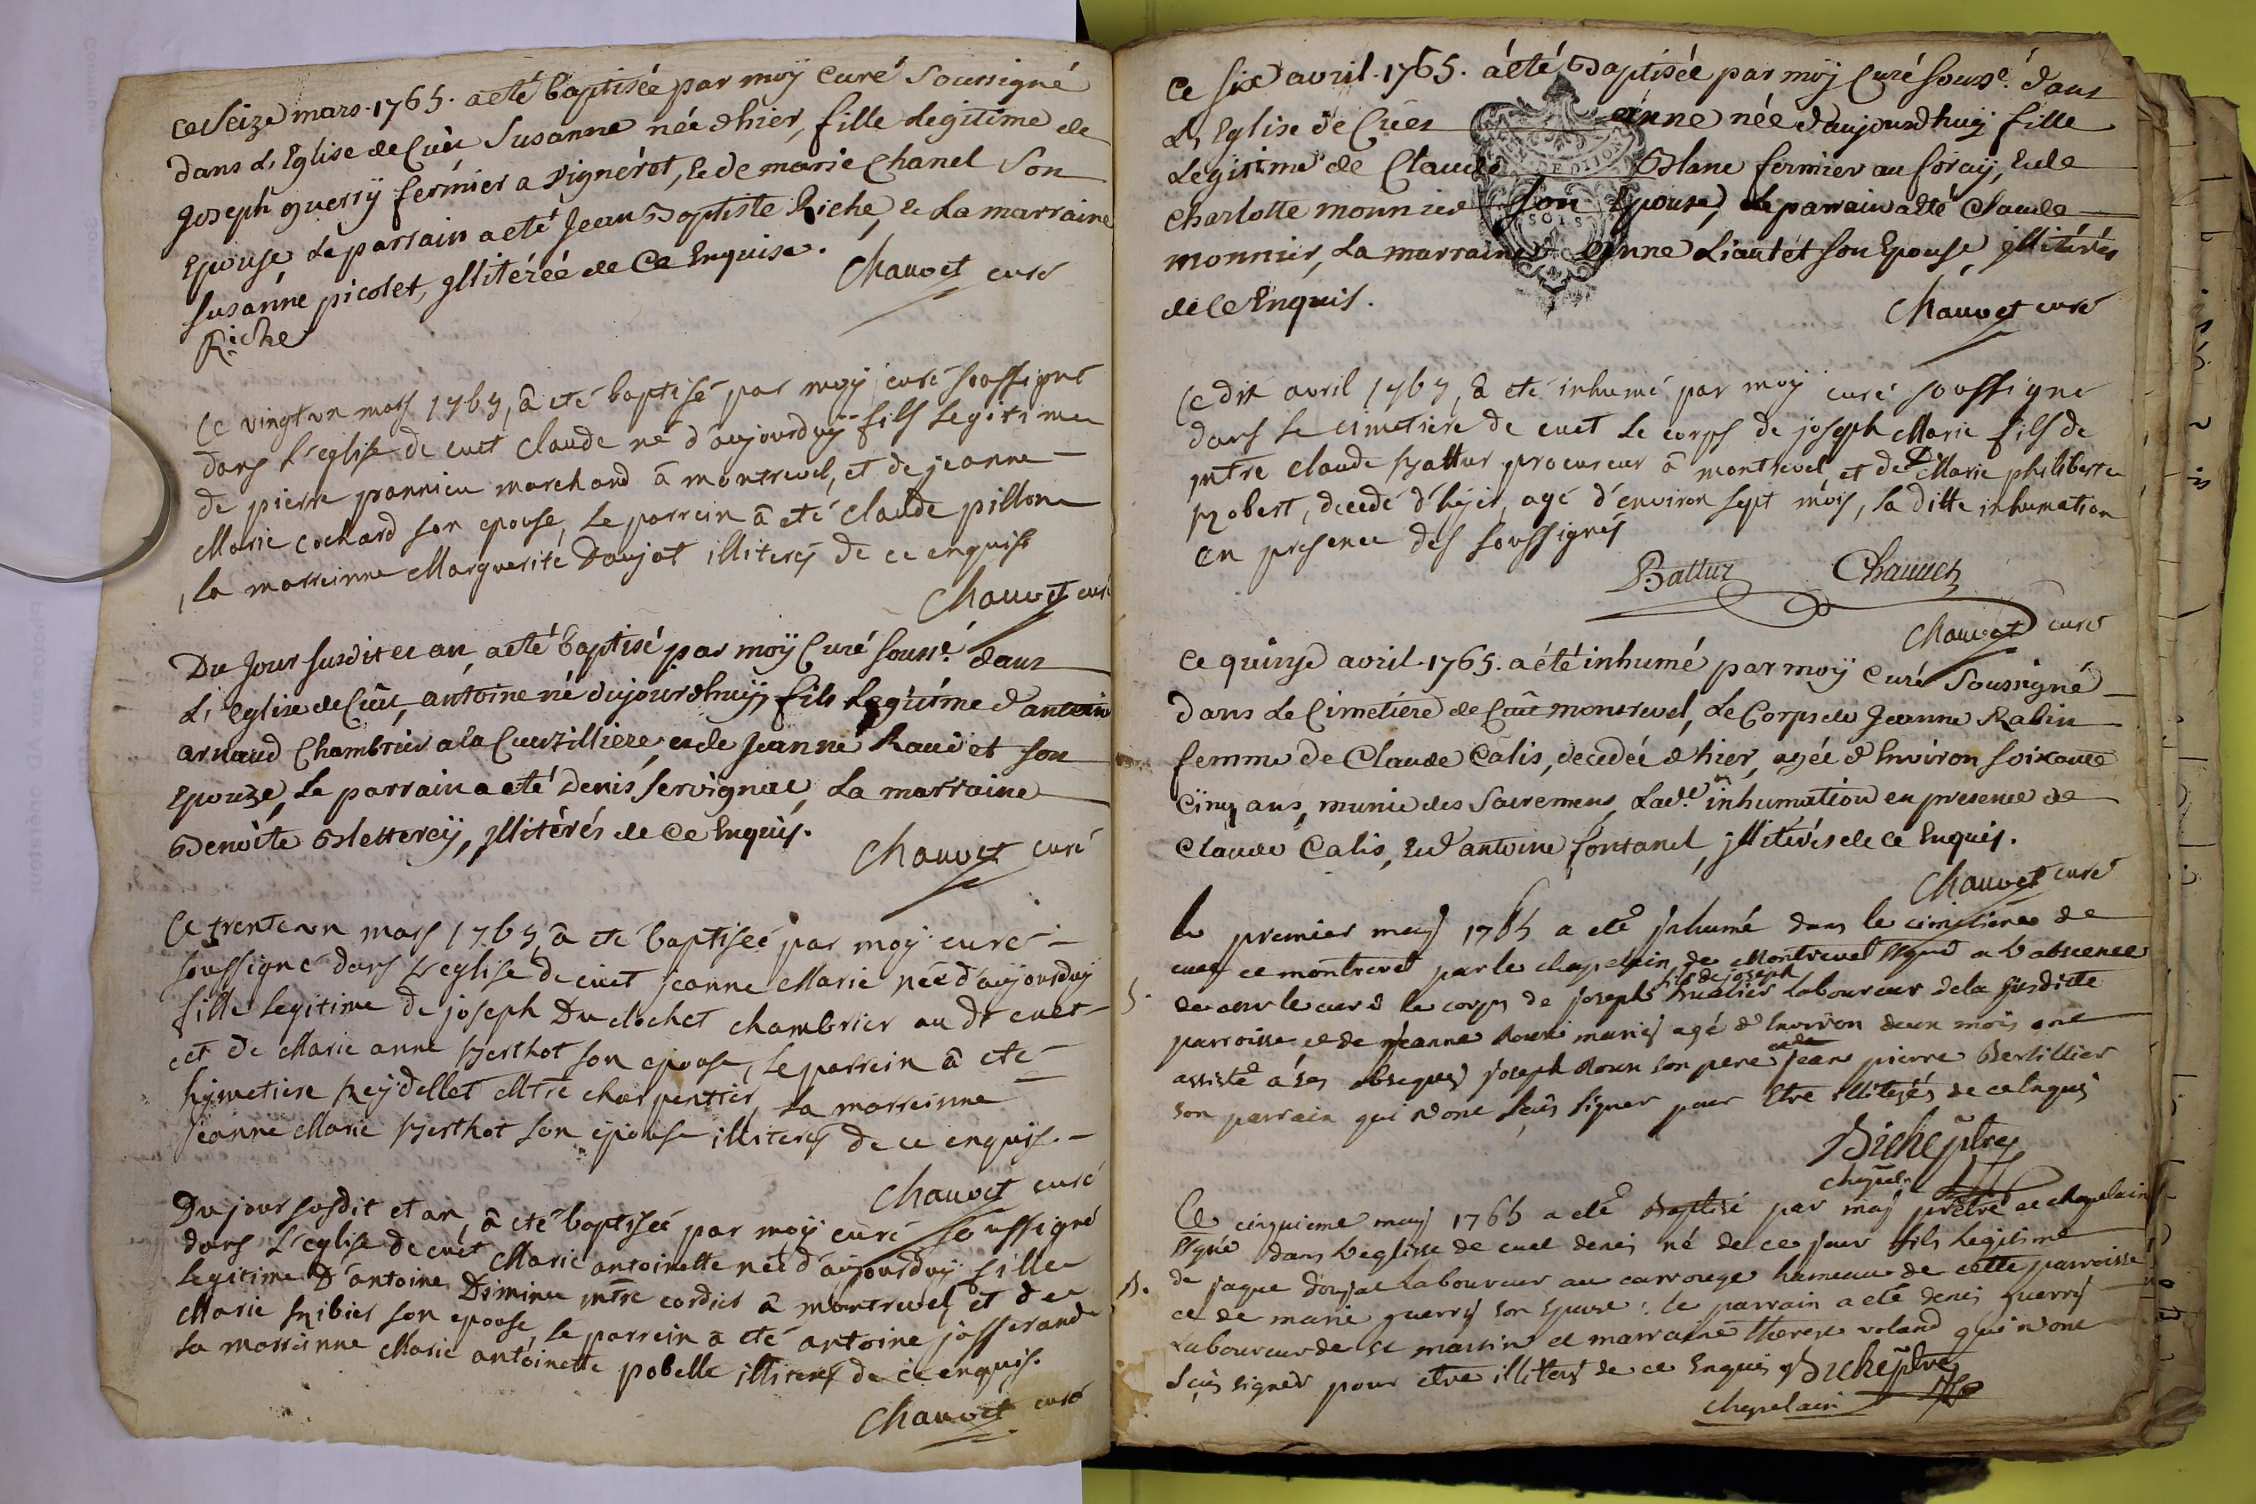 Ce Seize mars 1765. a eté baptisée par moÿ Curé Soussigné
dans L'Eglise de Cuët Susanne née d'hier, fille Legitime de
Joseph guerrÿ fermier a Vignérot, & de marie Chanel Son
Epouse Le parrain a eté Jean Baptiste Riche, & La marraine
Susanne picolet, jllitérée de Ce Enquise.
Chauvet curé
Riche
Ce vingt un mars 1765, â eté baptisé par moÿ curé soussigné
dans L'eglise de cuet Claude né d'aujourduÿ fils Legitime
de pierre marchand â montrevel, et de jeanne
Marie cochard son epouse, Le parrein â eté claude pillon
, La marreinne Marguerite Doujat illiterés de ce enquis
Chauvet curé
Du Jour susdit et an, a eté baptisé par moÿ Curé Souss.é dans
L'Eglise de Cuët, antoine né dujourdhuÿ, fils Legitime d'antoine
arnaud Chambrier a la Cuuzilliere, et de Jeanne Ravi et son
Epouze, Le parrain a eté Denis Servignac, La marraine
Benoite Blettereÿ, jllitérés de Ce Enquis.
Chauvet curé
Ce trente un mars 1765, â eté baptisée par moÿ curé
soussigné dans L'eglise de cuet jeanne Marie née d'aujourduÿ
fille Legitime de joseph Du clochet chambrier au dt cuet
et de Marie anne Berthot son epouse, Le parrein â eté
hÿmetiere Reÿdellet Mtre charpentier, La marreinne
jeanne Marie Berthot son epouse illiterés de ce enquis.
Chauvet curé
Du jour susdit et an, â eté baptisée par moÿ curé soussigné
dans L'eglise de cuet Marie antoinette née d'aujourduÿ fille
Legitime D'antoine mtre cordier â montrevel, et de
Marie Ribier son epouse, Le parrein â eté antoine josserand
La marreinne Marie antoinette pobelle illiterés de ce enquis.
Chauvet curé
Ce six avril 1765. a été Baptisée par moÿ Curé Souss.é dans
L'Eglise de Cuët anne née d'aujourdhuy fille
Legitime de Claude Blanc fermier au foraÿ, & de
Charlotte monnier Son Epouse, Le parrain a eté Claude
monnier, La marraine anne Liautet son Epouse, jllitérés
de Ce Enquis.
Chauvet curé
Ce dix avril 1765, â eté inhumé par moÿ curé soussigné
dans Le cimetiere de cuet Le corps de joseph Marie fils de
mtre claude Battur procureur â montrevel et de Marie philiberte
Robert, decedé d'hÿer, agé d'environ sept mois, La ditte inhumation
en presence des soussignés
Battur Chauvet
Chauvet curé
Ce quinze avril 1765. a été inhumé par moÿ Curé Soussigné
dans Le Cimetiére de Cuët montrevel, Le Corps de Jeanne Rabin
femme de Claude Calis, decedée d'hier, agée d'Environ soixante
Cinq ans, munie des Sacremens, Lad.e inhumation en presence de
Claude Calis, & d'antoine fontanel, jllitérés de Ce Enquis.
Chauvet curé
Le premier may 1765 a eté jnhumé dans le cimetiere de
cuet et montrevel par le chapelain de Montrevel ssgné en l'abscence
S. de le curé le corps de joseph fils de joseph laboureur dela susditte
parroisse et de jeanne mariés agé d'Environ deux mois ont
assisté â ses obseques joseph son pere et jean pierre Bertillier
son parrain qui n'ont sçus signer pour Etre illiterés de ce Enquis
Biche ptre
chapel.
Ce cinquieme may 1765 a eté Baptisé par moy prêtre et chapelain
ssgné dans l'eglisse de cuet denis né de ce jour fils legitime
B. de jaque doujat laboureur au carrouge hameau de cette parroisse
et de marie guerry son Epouse: le parrain a eté denis guerry
Laboureur de st martin et marraine therese voland qui n'ont
sçus signer pour etre illiterés de ce Enquis Biche ptre
chapelain